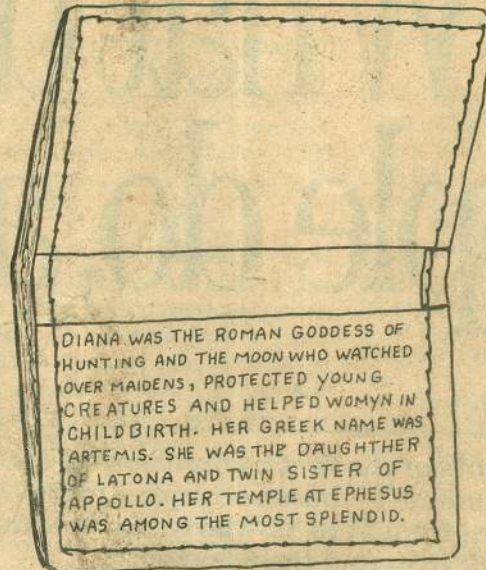 DIANA WAS THE ROMAN GODDESS OF
HUNTING AND THE MOON WHO WATCHED
OVER MAIDENS, PROTECTED YOUNG
CREATURES AND HELPED WOMYN IN
CHILDBIRTH. HER GREEK NAME WAS
ARTEMIS. SHE WAS THE DAUGHTHER
OF LATONA AND TWIN SISTER OF
APPOLLO. HER TEMPLE AT EPHESUS
WAS AMONG THE MOST SPLENDID.